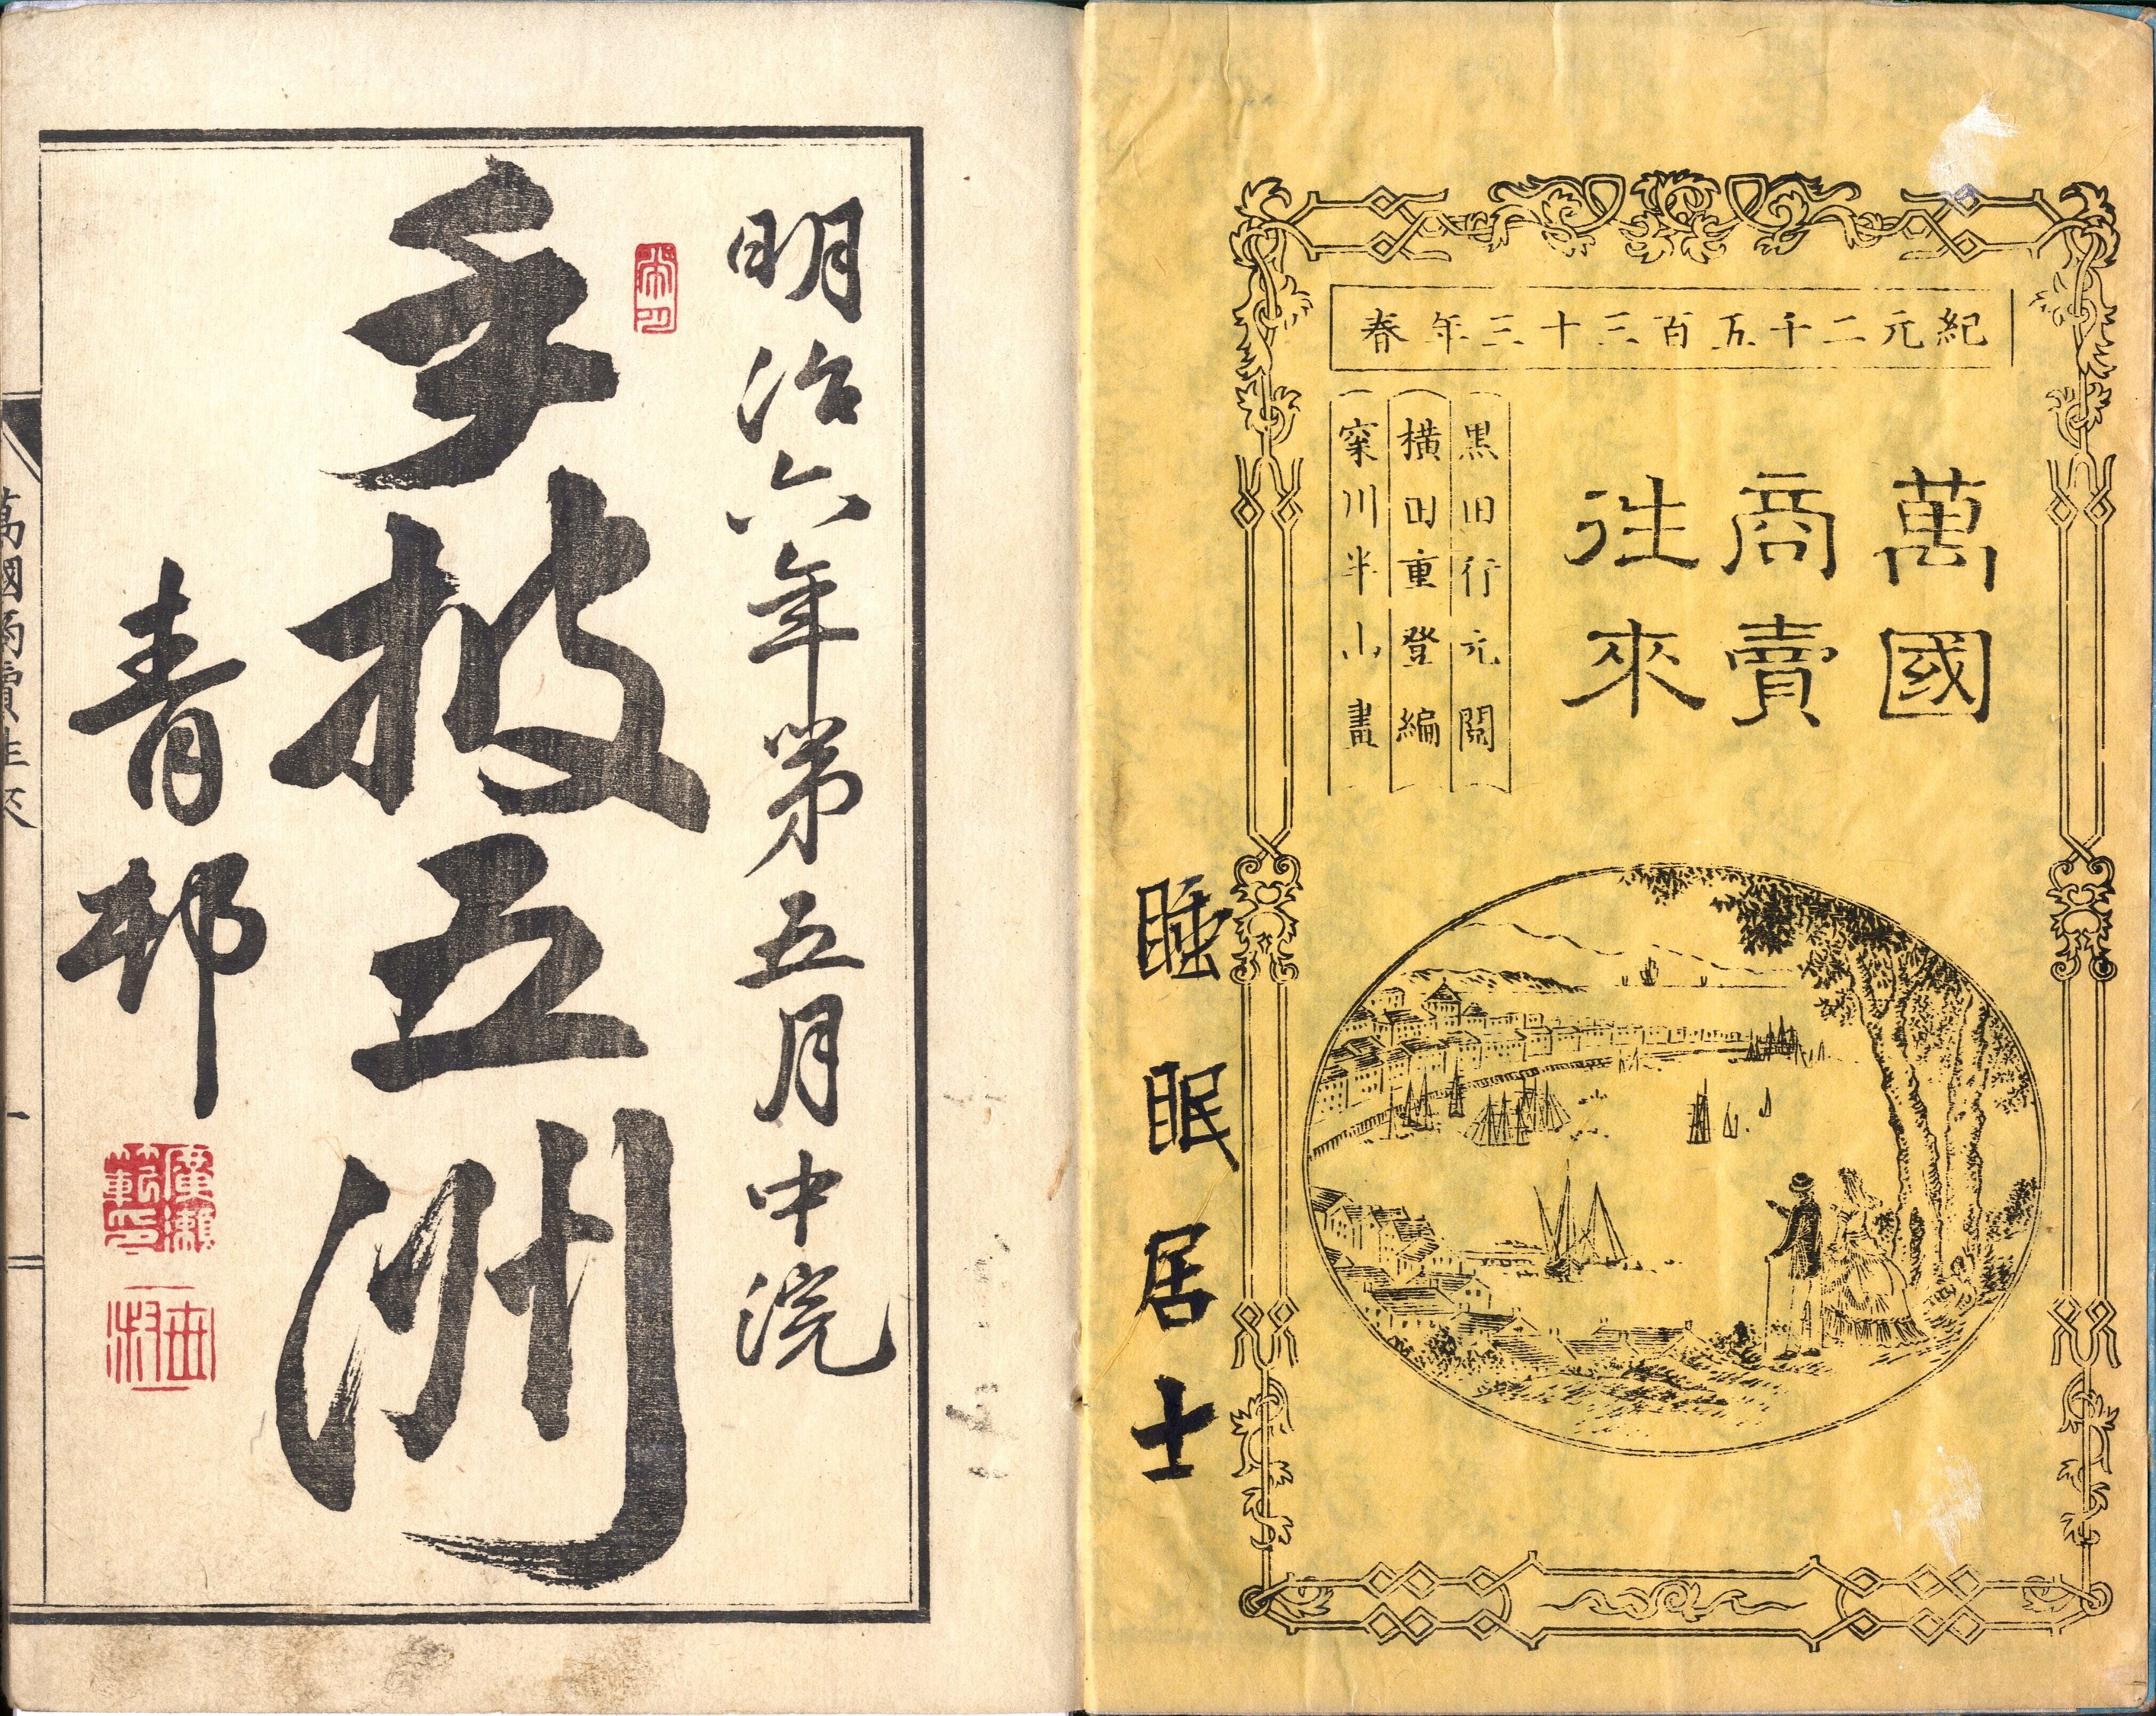 紀元二千五百三十三年春
萬國
商賣
往來
黒田行元閲
橫田重登編
寀川半山畫
睡眠居士
明治六年第五月中浣
手披五洲
青邨
廣瀨
範
世叔
萬國商賣往來
一